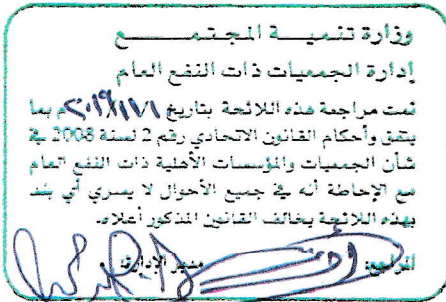 وزارة تنميــة المجتمــع
إدارة الجمعيات ذات النفع العام
تمت مراجعة هذه اللائحة بتاريخ م بما
يتفق وأحكام القانون الاتحادي رقم 2 لسنة 2008 في
شأن الجمعيات والمؤسسات الأهلية ذات النفع العام
مع الإحاطة أنه في جميع الأحوال لا يسري أي بند
بهذه اللائحة يخالف القانون المذكور أعلاه.
المراجع: مدير الإدارة: